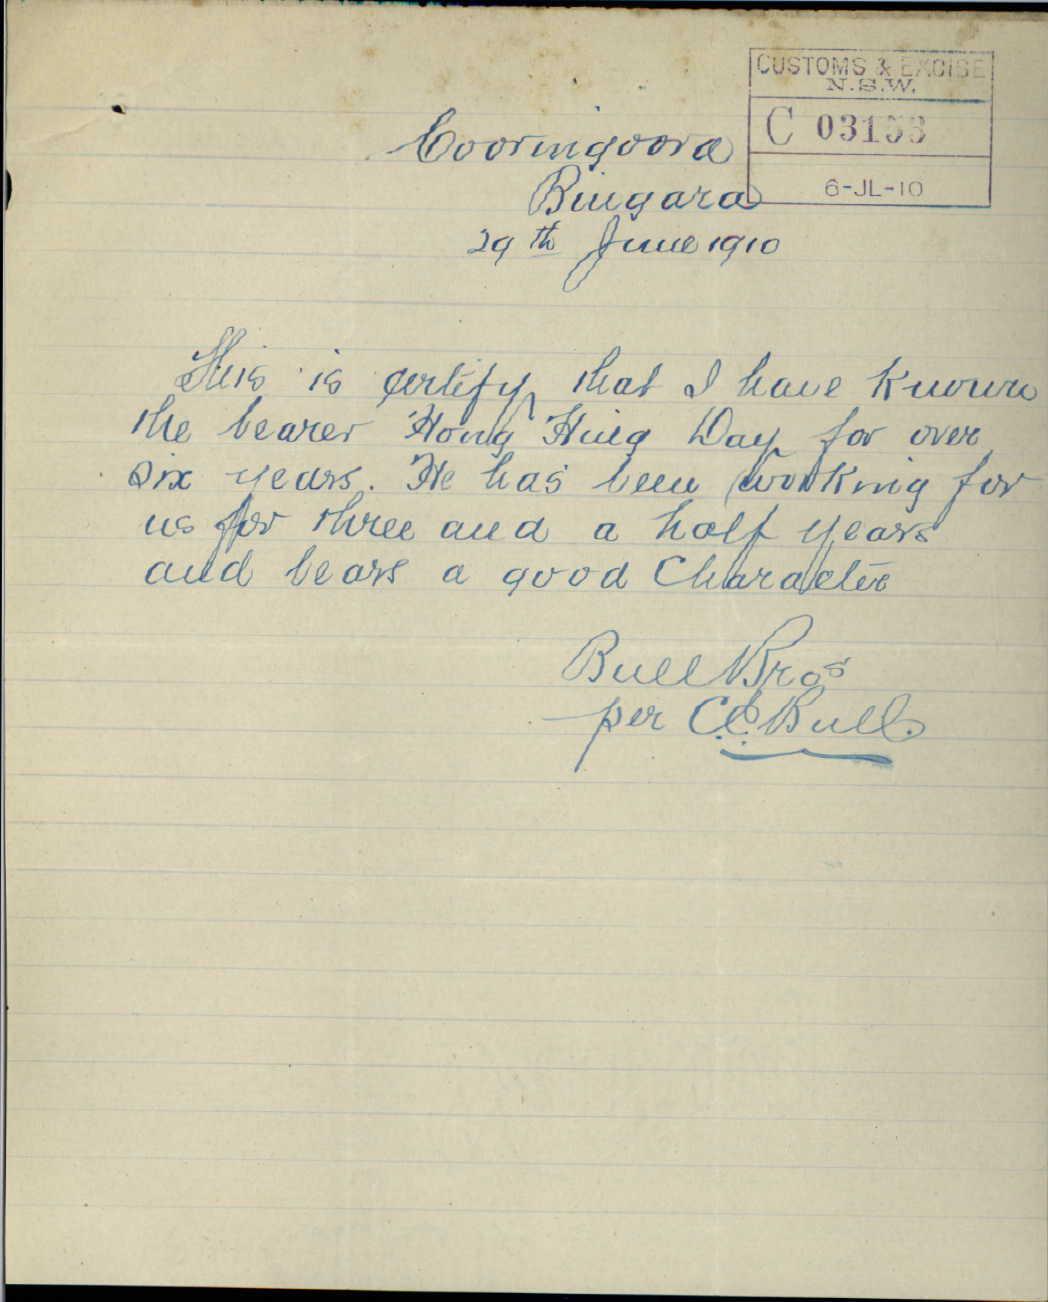 CUSTOMS & EXCISE
N.S.W.
C 03153
6-JL-10
Cooringoora
Bingara
29th June 1910
This is certify that I have known
the bearer Hong Hing Day for over
six years. He has been working for
us for three and a half years
and bears a good Character
Bull Bros
per C.C. Bull.